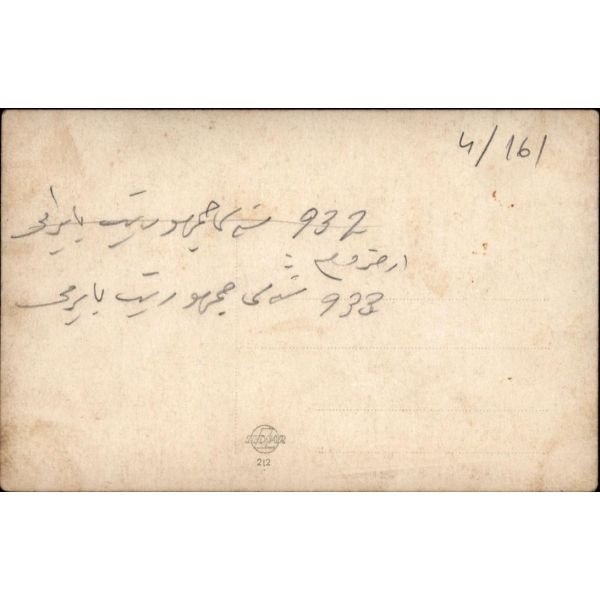 4/161
932 سنه سی جمهوریت بایرامی
933 سنه سی جمهوریت بایرامی
212